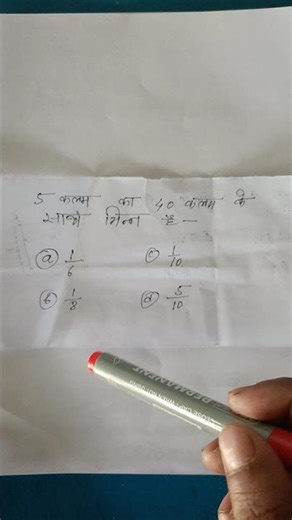 5 कलम का 40 कलम के
साथ भिन्न है —
ⓐ 1/6 ⓒ 1/10
ⓑ 1/8 ⓓ 5/10
PERMANENT